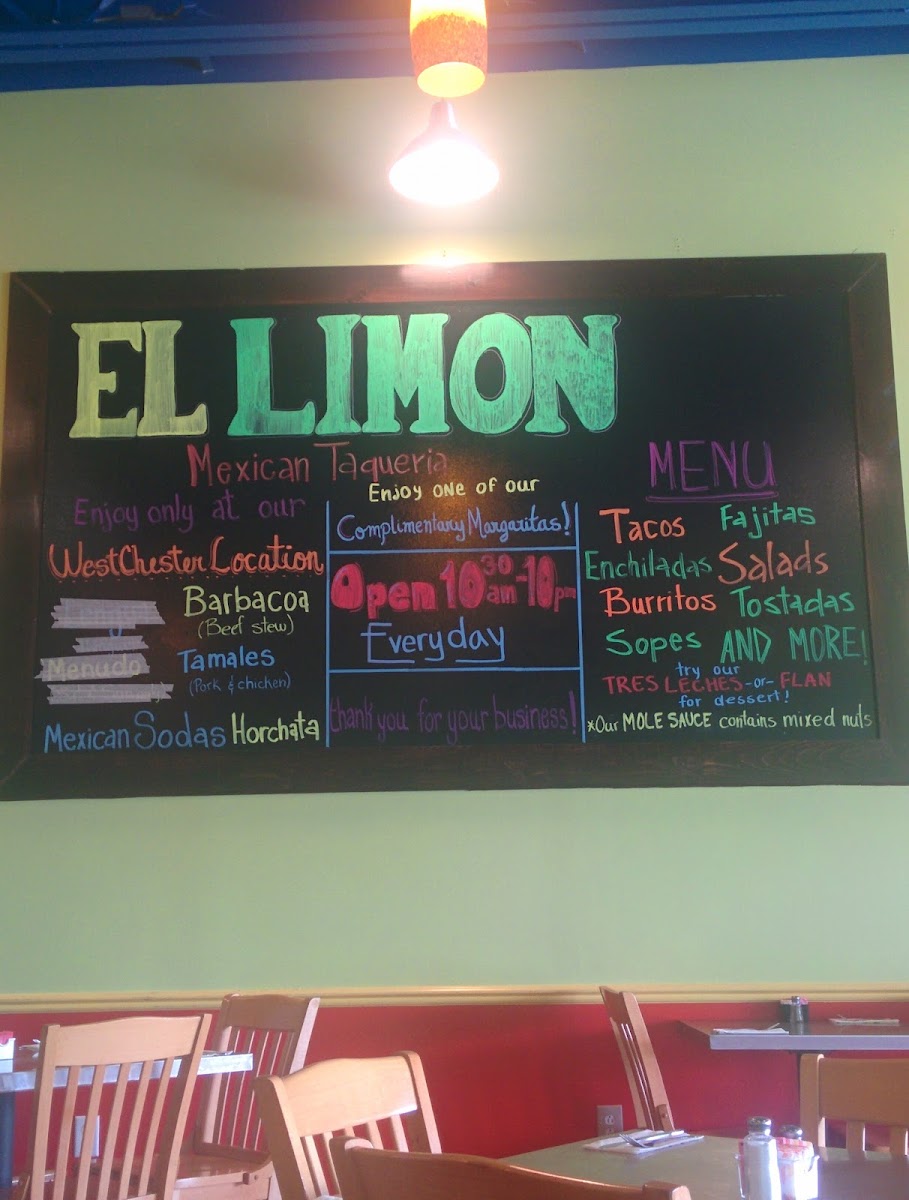 EL LIMON
Mexican Taqueria
Enjoy only at our
WestChester Location
Barbacoa
(Beef stew)
Menudo
Tamales
(Pork & chicken)
Mexican Sodas Horchata
Enjoy one of our
Complimentary Margaritas!
Open 10³⁰am-10pm
Everyday
thank you for your business!
MENU
Tacos Fajitas
Enchiladas Salads
Burritos Tostadas
Sopes AND MORE!
try our
TRES LECHES -or- FLAN
for dessert!
*Our MOLE SAUCE contains mixed nuts